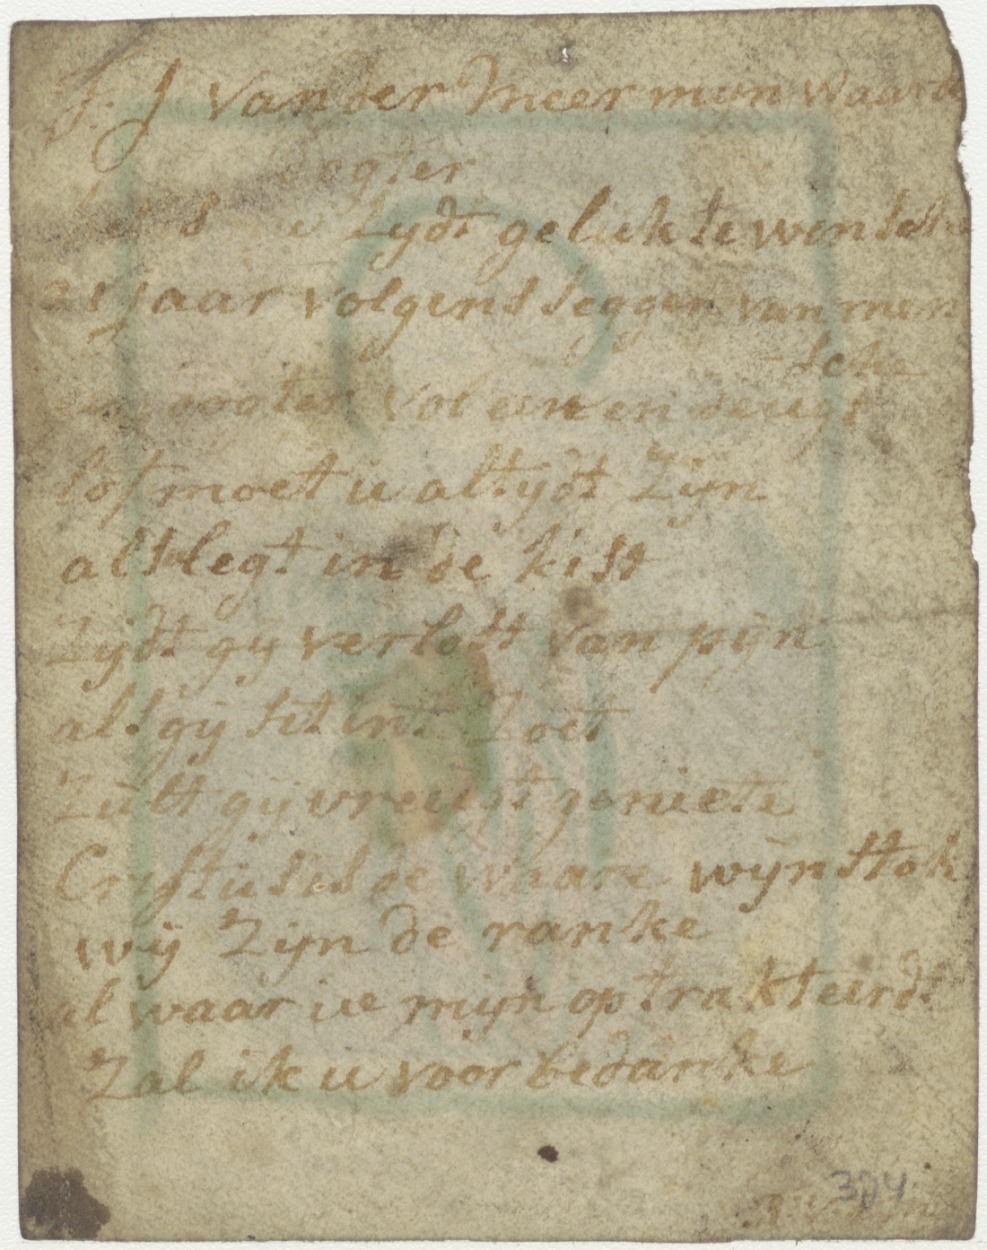 F. J Vander Meer myn Waard
dogter
u Zydt geluk te wensche
jaar volgens seggen van men
sche
dogter vol eer en deugt
lof moet u altydt Zijn
als legt in de kist
Zijdt gij verlost van pijn
als gij sit int Zoet
Zult gij vreugt geniete
Cristus is de waare wijnstok
wij Zijn de ranke
al waar ue mijn op trakteirdt
Zal ik u voor bedanke
324